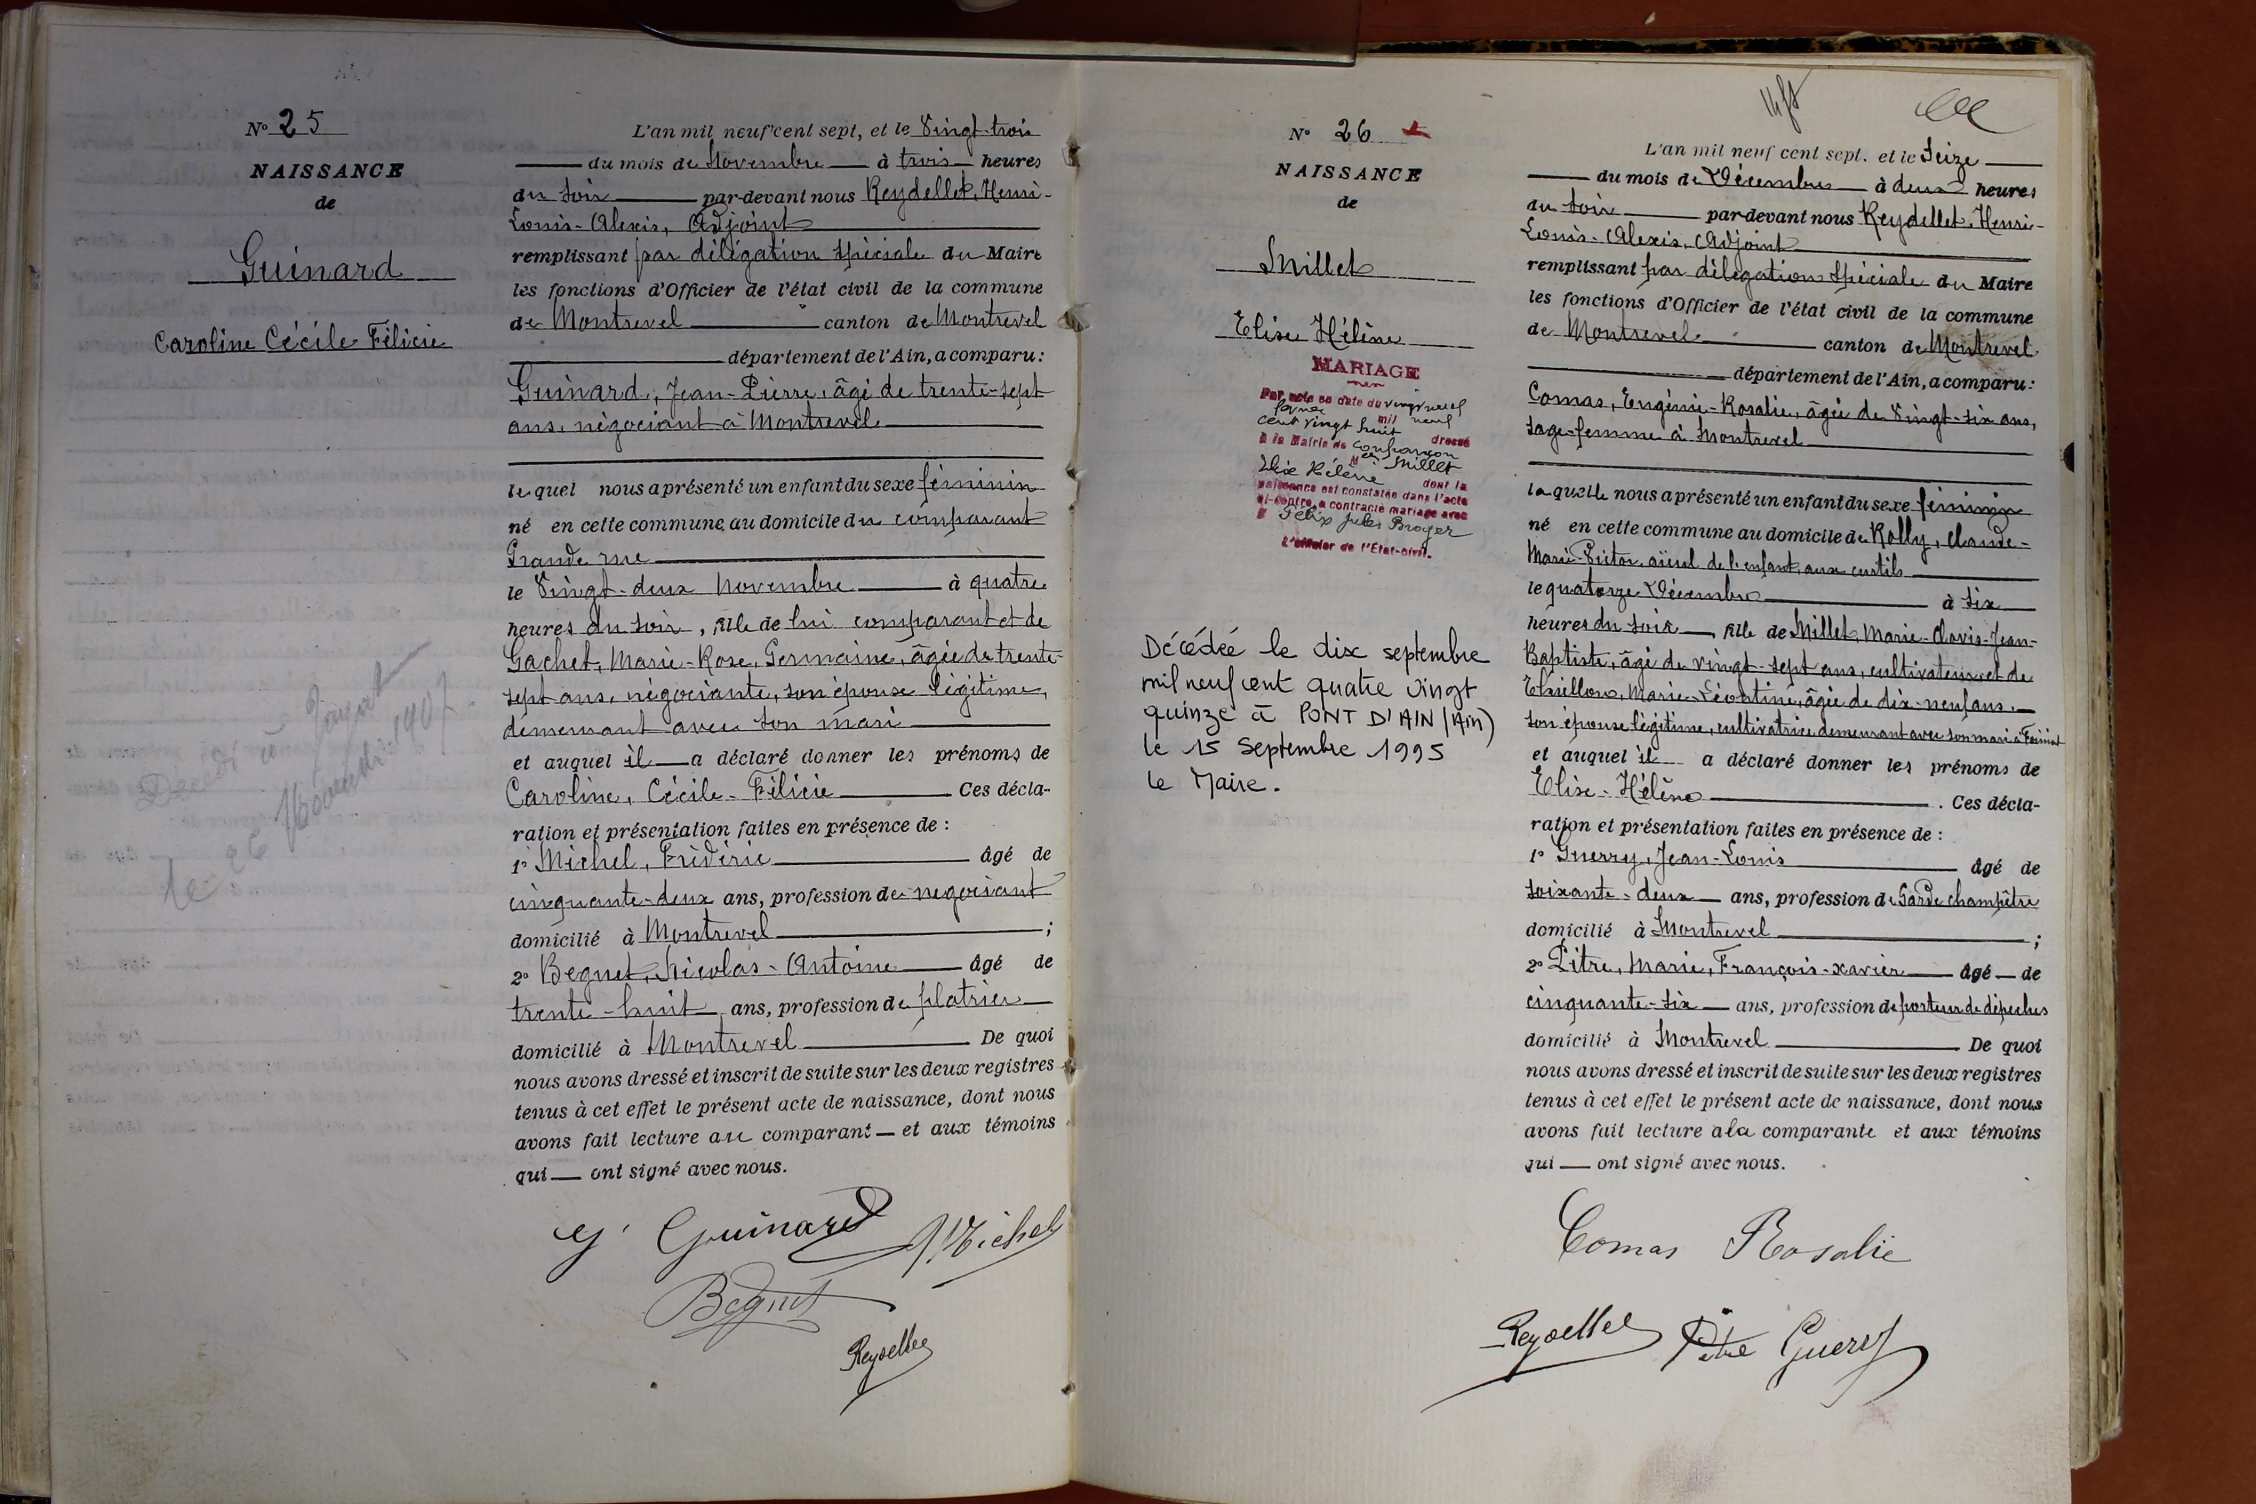 N° 25
NAISSANCE
de
Guinard
Caroline Cécile Félicie
Décédé à
le 26 Novembre 1907
L'an mil neuf cent sept, et le Vingt-trois
du mois de Novembre à trois heures
du soir par-devant nous Reydellet, Henri-
Louis-Alexis, Adjoint
remplissant par délégation spéciale du Maire
les fonctions d'Officier de l'état civil de la commune
de Montrevel canton de Montrevel
département de l'Ain, a comparu:
Guinard, Jean-Pierre, âgé de trente-sept
ans, négociant à Montrevel
lequel nous a présenté un enfant du sexe féminin
né en cette commune, au domicile du comparant
Grande rue
le Vingt-deux novembre à quatre
heures du soir, fille de lui comparant et de
Gachet, Marie-Rose, Germaine, âgée de trente-
sept ans, négociante, son épouse légitime,
demeurant avec son mari
et auquel il a déclaré donner les prénoms de
Caroline, Cécile-Félicie Ces décla-
ration et présentation faites en présence de :
1° Michel, Frédéric âgé de
cinquante-deux ans, profession de negociant
domicilié à Montrevel ;
2° Beguet, Nicolas-Antoine âgé de
trente-huit ans, profession de platrier
domicilié à Montrevel De quoi
nous avons dressé et inscrit de suite sur les deux registres
tenus à cet effet le présent acte de naissance, dont nous
avons fait lecture au comparant et aux témoins
qui ont signé avec nous.
Guinard Michel
Beguet
Reydellet
N° 26
NAISSANCE
de
Millet
Elise Hélène
MARIAGE
Par acte en date du vingt neuf
mil neuf
cent vingt huit dressé
à la Mairie de Confrançon
Millet
Elise Hélène dont la
naissance est constatée dans l'acte
ci-contre, a contracté mariage avec
Félix Jules Broyer
L'officier de l'Etat-civil.
Décédée le dix septembre
mil neuf cent quatre vingt
quinze à PONT D'AIN (Ain)
le 15 septembre 1995
le Maire.
L'an mil neuf cent sept, et le Seize
du mois de Décembre à deux heures
du soir par-devant nous Reydellet, Henri-
Louis-Alexis, Adjoint
remplissant par délégation spéciale du Maire
les fonctions d'Officier de l'état civil de la commune
de Montrevel canton de Montrevel
département de l'Ain, a comparu:
Comas, Eugénie-Rosalie, âgée de Vingt-six ans,
sage-femme à Montrevel
laquelle nous a présenté un enfant du sexe féminin
né en cette commune au domicile de Rolly, Claude-
Marie-Victor, aïeul de l'enfant, aux curtils
le quatorze Décembre à six
heures du soir, fille de Millet, Marie-Clovis-Jean-
Baptiste, âgé de vingt-sept ans, cultivateur et de
Marie-Léontine, âgée de dix-neuf ans,
son épouse légitime, cultivatrice demeurant avec son mari à
et auquel il a déclaré donner les prénoms de
Elise-Hélène. Ces décla-
ration et présentation faites en présence de :
1° Guerry, Jean-Louis âgé de
soixante-deux ans, profession de Garde champêtre
domicilié à Montrevel ;
2° Pitre, Marie, François-xavier âgé de
cinquante-six ans, profession de porteur de dépeches
domicilié à Montrevel De quoi
nous avons dressé et inscrit de suite sur les deux registres
tenus à cet effet le présent acte de naissance, dont nous
avons fait lecture à la comparante et aux témoins
qui ont signé avec nous.
Comas Rosalie
Reydellet Pitre Guerry